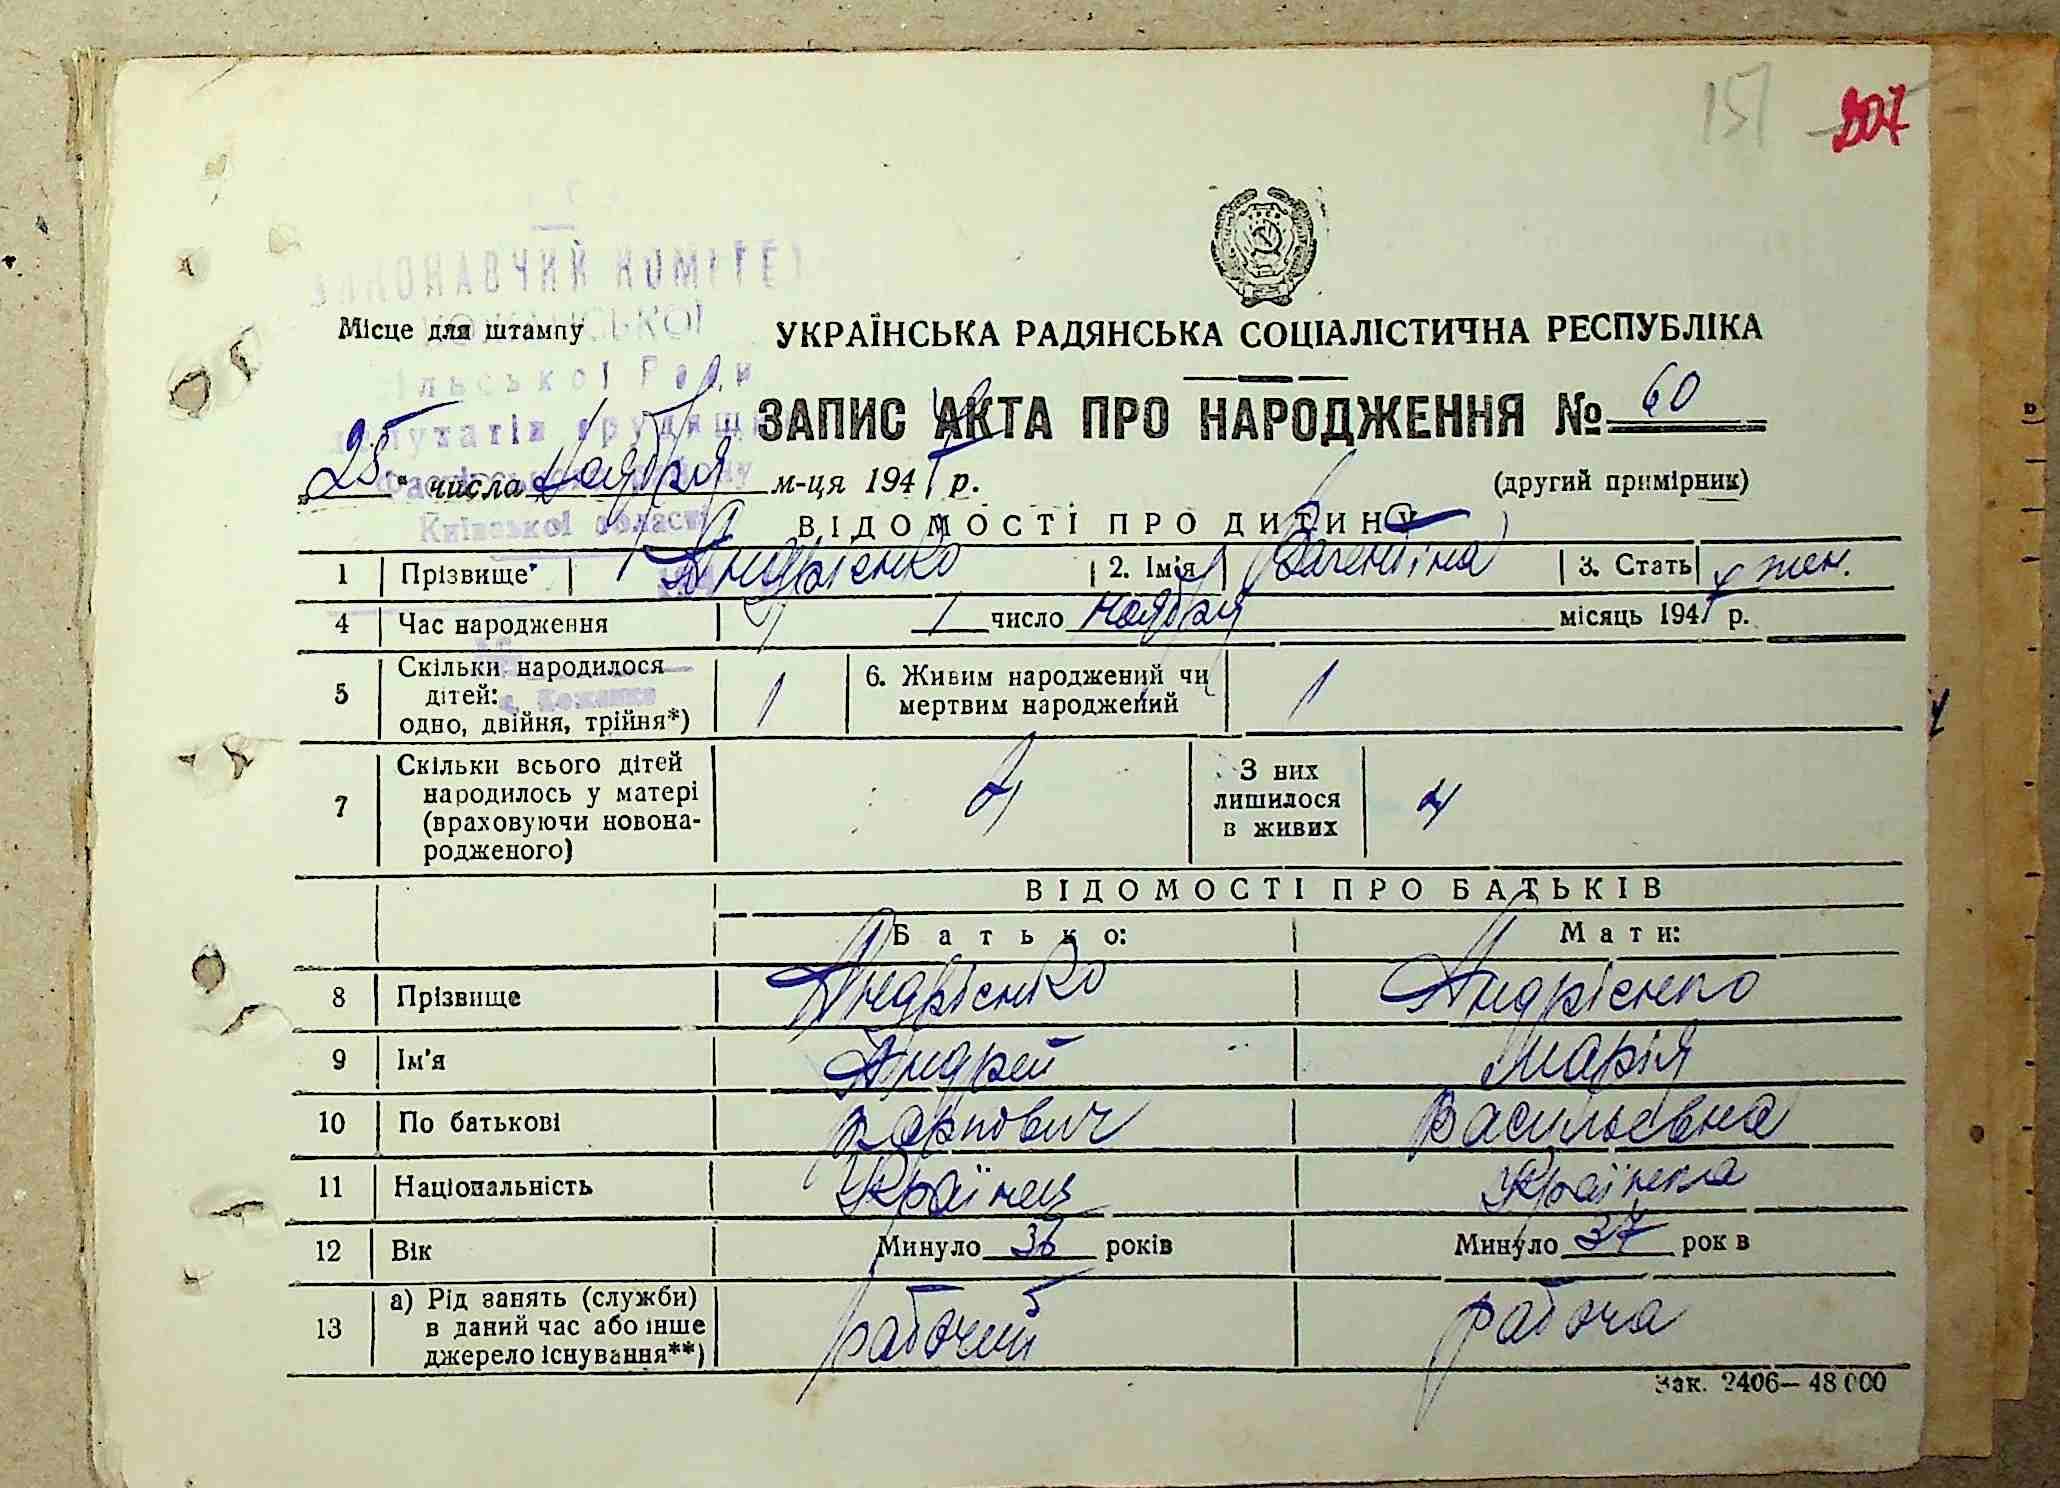 151 207
ВИКОНАВЧИЙ КОМІТЕТ
КОЖАНСЬКОЇ
Місце для штампу
УКРАЇНСЬКА РАДЯНСЬКА СОЦІАЛІСТИЧНА РЕСПУБЛІКА
сільської Ради
депутатів трудящ
ЗАПИС АКТА ПРО НАРОДЖЕННЯ № 60
Фастівського району
„25“ числа Ноября м-ця 194 р.
(другий примірник)
Київської області
ВІДОМОСТІ ПРО ДИТИНУ
1 Прізвище Андрієнко 2. Ім'я Валентіна 3. Стать жен.
4 Час народження 1 число ноября місяць 194 р.
5 Скільки народилося дітей: одно, двійня, трійня*) 1 6. Живим народжений чи мертвим народжений 1
с. Кожанка
7 Скільки всього дітей народилось у матері (враховуючи новонародженого) 4 З них лишилося в живих 4
ВІДОМОСТІ ПРО БАТЬКІВ
Батько: Мати:
8 Прізвище Андрієнко Андрієнко
9 Ім'я Андрей Марія
10 По батькові Карпович Васильєвна
11 Національність Українец Українка
12 Вік Минуло 36 років Минуло 37 рок в
13 а) Рід занять (служби) в даний час або інше джерело існування**) рабочий рабоча
Зак. 2406—48 000